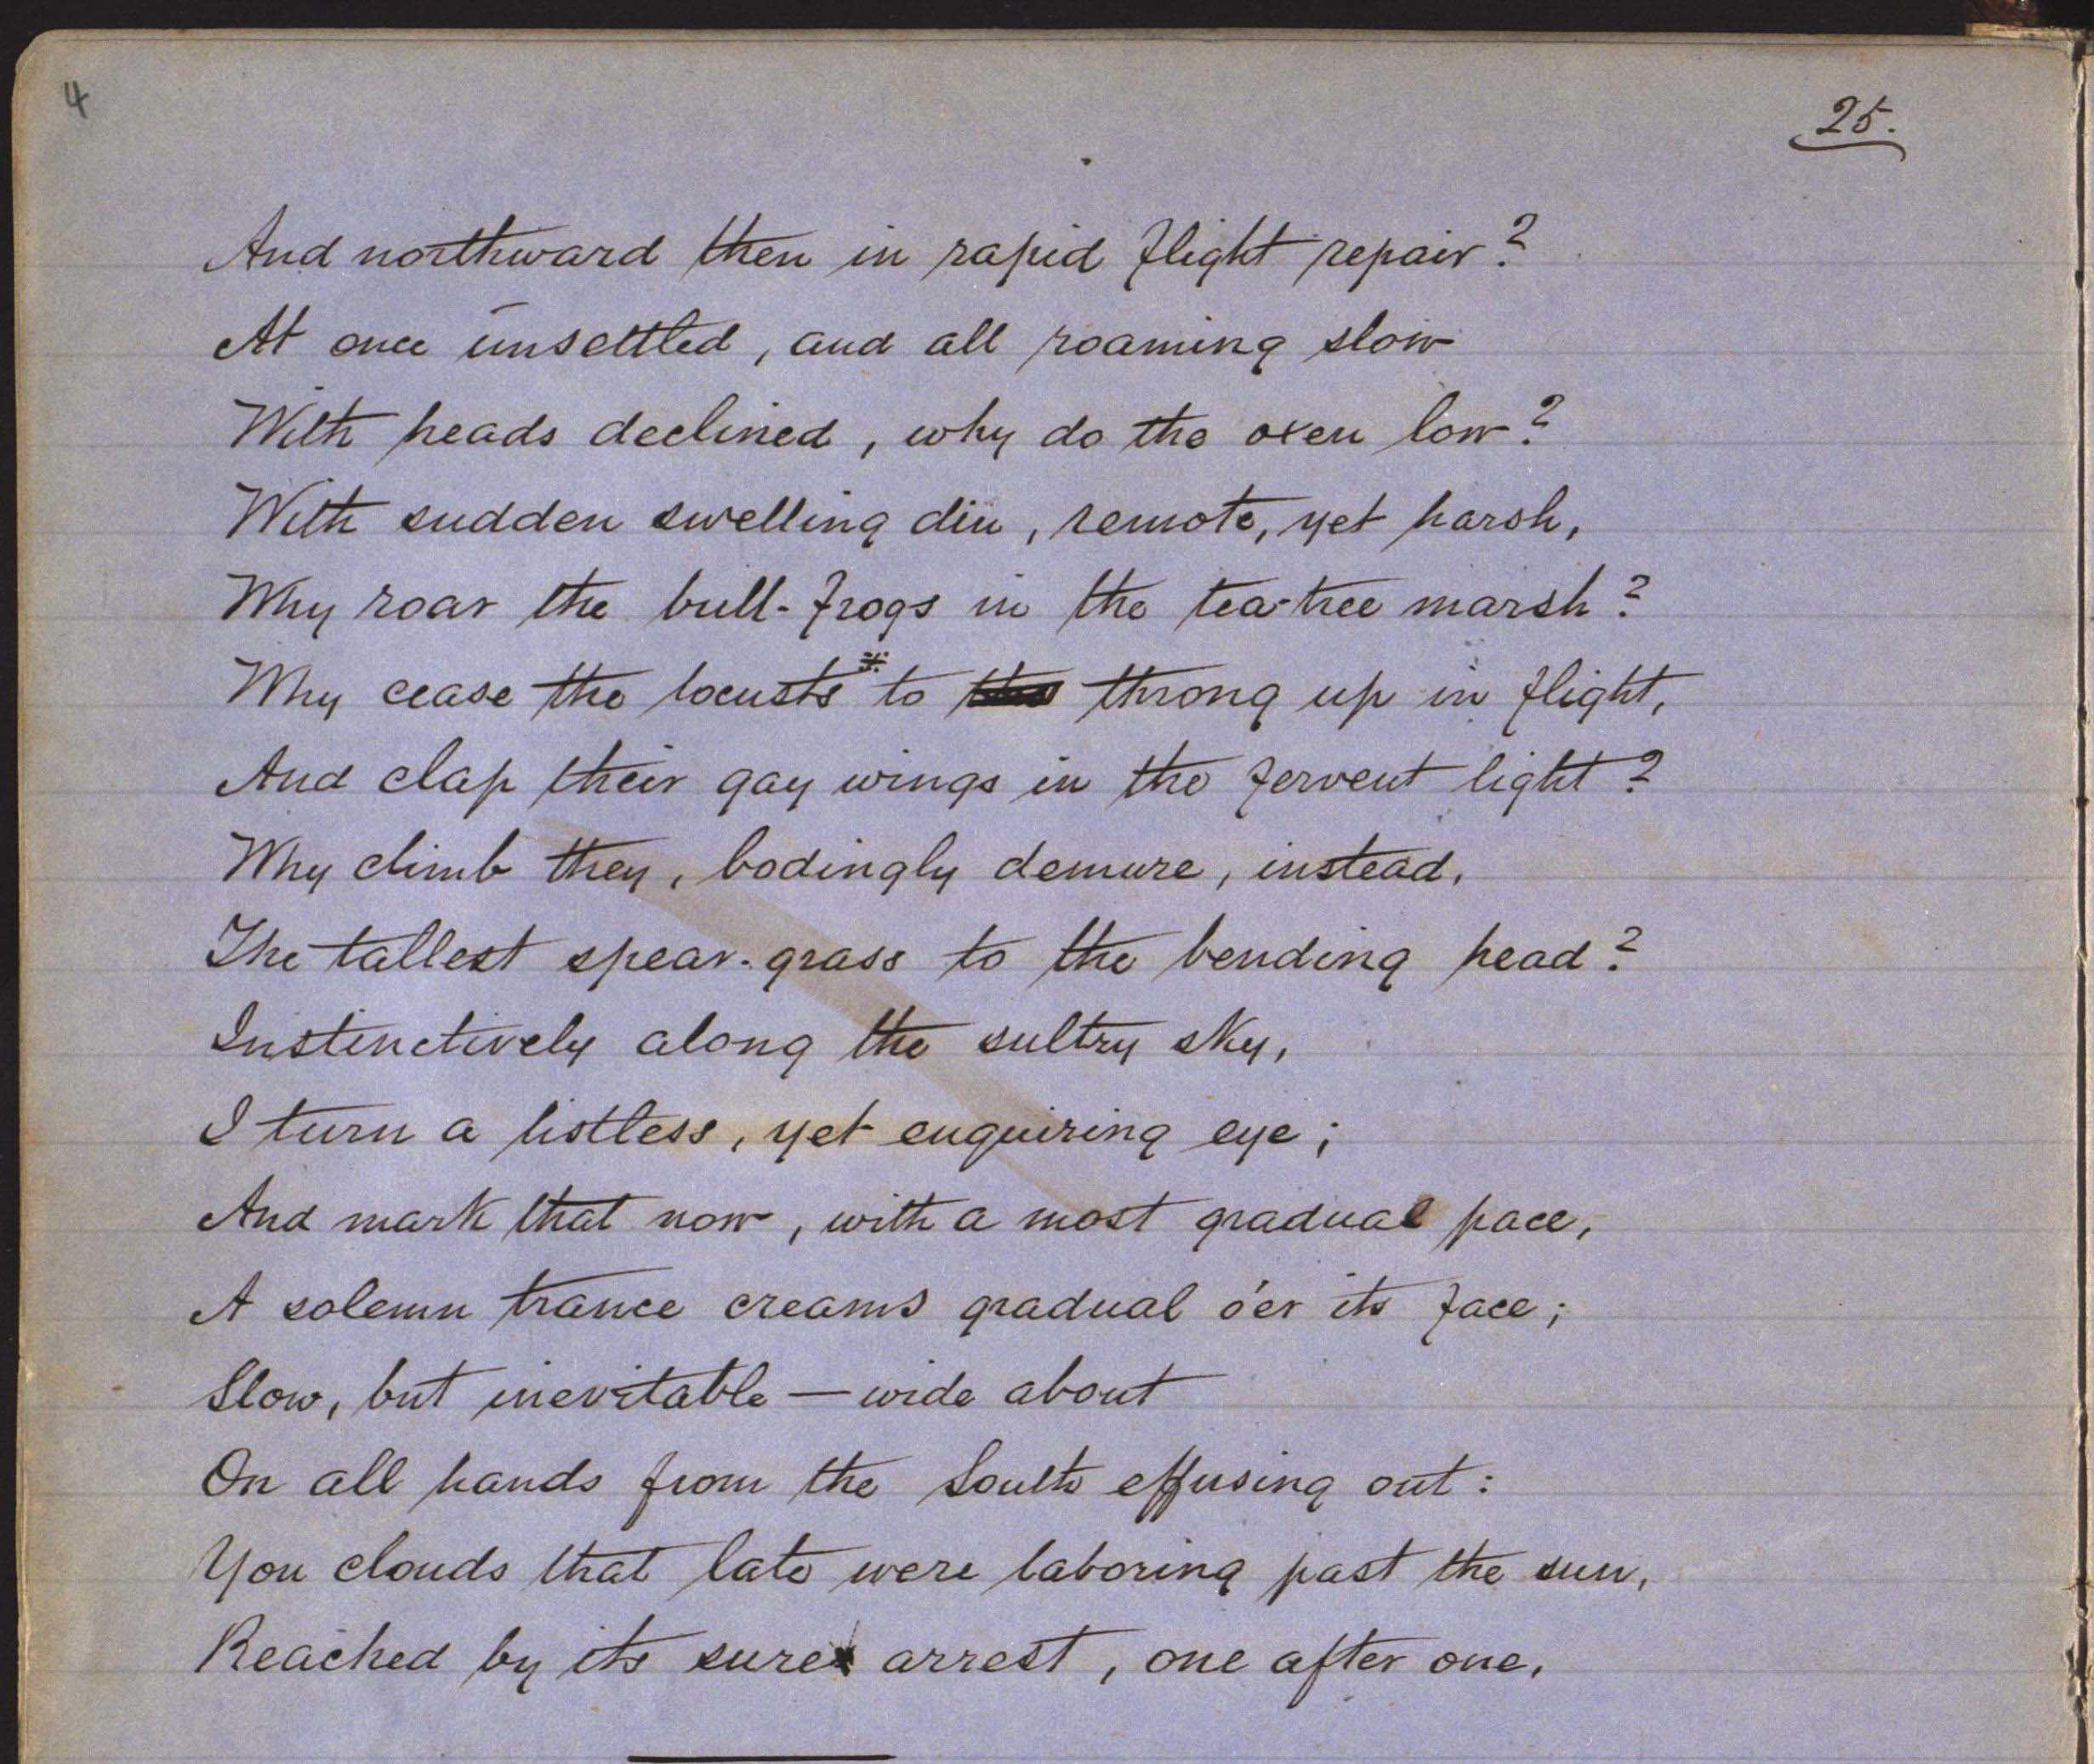 4
25.
And northward then in rapid flight repair?
At once unsettled, and all roaming slow
With heads declined, why do the oxen low?
With sudden swelling din, remote, yet harsh,
Why roar the bull-frogs in the tea-tree marsh?
Why cease the locusts* to throng up in flight,
And clap their gay wings in the fervent light?
Why climb they, bodingly demure, instead,
The tallest spear-grass to the bending head?
Instinctively along the sultry sky,
I turn a listless, yet enquiring eye;
And mark that now, with a most gradual pace,
A solemn trance creams gradual o'er its face;
Slow, but inevitable — wide about
On all hands from the South effusing out:
Yon clouds that late were laboring past the sun,
Reached by its sure arrest, one after one,